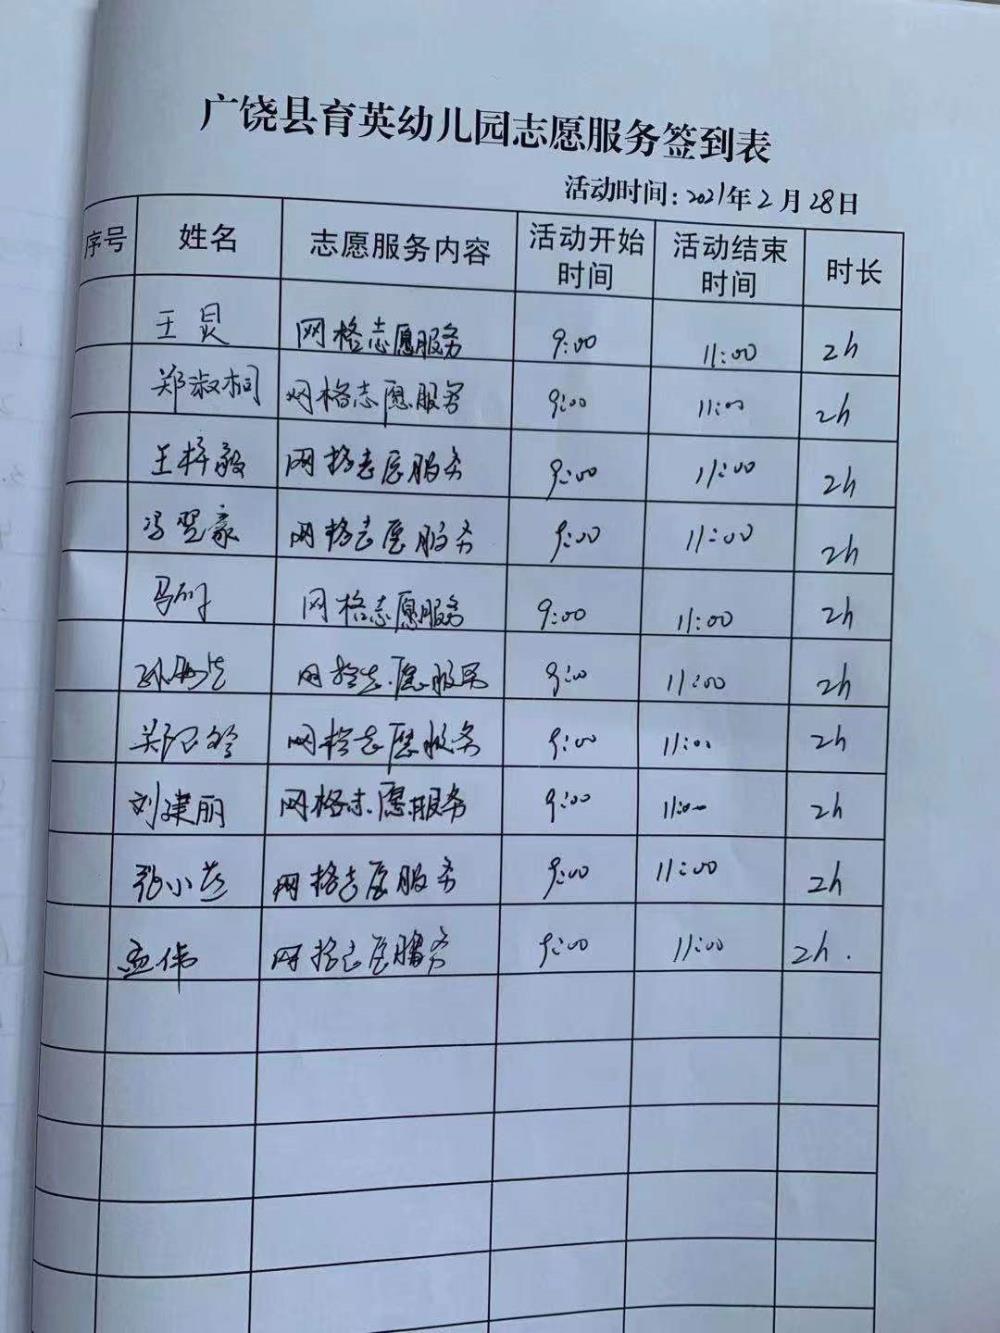 广饶县育英幼儿园志愿服务签到表
活动时间:2021年2月28日
序号 姓名 志愿服务内容 活动开始时间 活动结束时间 时长
王 网格志愿服务 9:00 11:00 2h
郑淑桐 网格志愿服务 9:00 11:00 2h
王梓毅 网格志愿服务 9:00 11:00 2h
冯翌豪 网格志愿服务 9:00 11:00 2h
马 网格志愿服务 9:00 11:00 2h
孙 网格志愿服务 9:00 11:00 2h
郑 网格志愿服务 9:00 11:00 2h
刘建丽 网格志愿服务 9:00 11:00 2h
张小燕 网格志愿服务 9:00 11:00 2h
孟伟 网格志愿服务 9:00 11:00 2h.